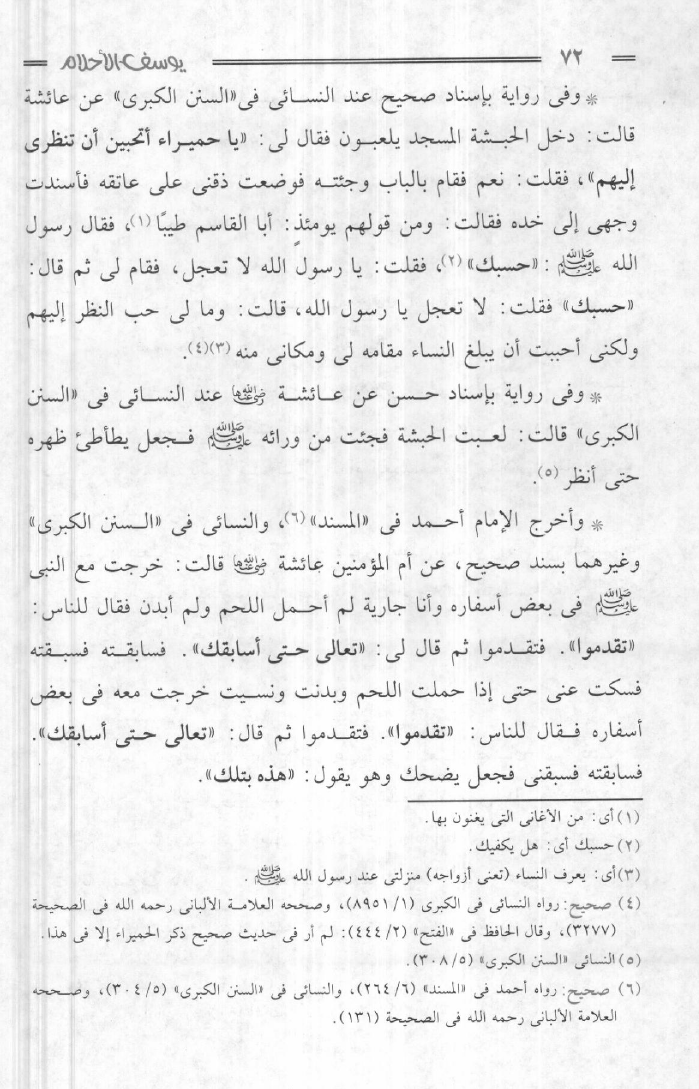 ٧٢ يوسف الأحلام
* وفى رواية بإسناد صحيح عند النسائى فى «السنن الكبرى» عن عائشة
قالت: دخل الحبشة المسجد يلعبون فقال لى: «يا حميراء أتحبين أن تنظرى
إليهم»، فقلت: نعم فقام بالباب وجئته فوضعت ذقنى على عاتقه فأسندت
وجهى إلى خده فقالت: ومن قولهم يومئذٍ: أبا القاسم طيبًا (١)، فقال رسول
الله ﷺ: «حسبك» (٢)، فقلت: يا رسول الله لا تعجل، فقام لى ثم قال:
«حسبك» فقلت: لا تعجل يا رسول الله، قالت: وما لى حب النظر إليهم
ولكنى أحببت أن يبلغ النساء مقامه لى ومكانى منه (٣)(٤).
* وفى رواية بإسناد حسن عن عائشة رضي الله عنها عند النسائى فى «السنن
الكبرى» قالت: لعبت الحبشة فجئت من ورائه ﷺ فجعل يطأطئ ظهره
حتى أنظر (٥).
* وأخرج الإمام أحمد فى «المسند» (٦)، والنسائى فى «السنن الكبرى»
وغيرهما بسند صحيح، عن أم المؤمنين عائشة رضي الله عنها قالت: خرجت مع النبى
ﷺ فى بعض أسفاره وأنا جارية لم أحمل اللحم ولم أبدن فقال للناس:
«تقدموا». فتقدموا ثم قال لى: «تعالى حتى أسابقك». فسابقته فسبقته
فسكت عنى حتى إذا حملت اللحم وبدنت ونسيت خرجت معه فى بعض
أسفاره فقال للناس: «تقدموا». فتقدموا ثم قال: «تعالى حتى أسابقك».
فسابقته فسبقنى فجعل يضحك وهو يقول: «هذه بتلك».
(١) أى: من الأغانى التى يغنون بها.
(٢) حسبك أى: هل يكفيك.
(٣) أى: يعرف النساء (تعنى أزواجه) منزلتى عند رسول الله ﷺ.
(٤) صحيح: رواه النسائى فى الكبرى (٨٩٥١/١)، وصححه العلامة الألبانى رحمه الله فى الصحيحة
(٣٢٧٧)، وقال الحافظ فى «الفتح» (٤٤٤/٢): لم أر فى حديث صحيح ذكر الحميراء إلا فى هذا.
(٥) النسائى «السنن الكبرى» (٣٠٨/٥).
(٦) صحيح: رواه أحمد فى «المسند» (٢٦٤/٦)، والنسائى فى «السنن الكبرى» (٣٠٤/٥)، وصححه
العلامة الألبانى رحمه الله فى الصحيحة (١٣١).